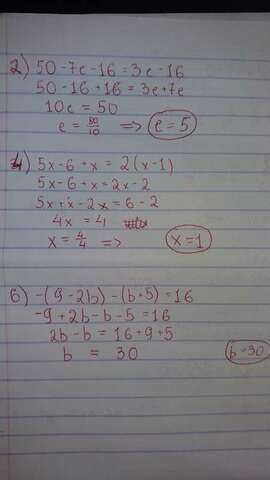 2) 50 - 7e - 16 = 3e - 16
50 - 16 + 16 = 3e + 7e
10e = 50
e = 50/10 => e = 5
4) 5x - 6 + x = 2(x - 1)
5x - 6 + x = 2x - 2
5x + x - 2x = 6 - 2
4x = 4
x = 4/4 => x = 1
6) -(9 - 2b) - (b + 5) = 16
-9 + 2b - b - 5 = 16
2b - b = 16 + 9 + 5
b = 30 b = 30